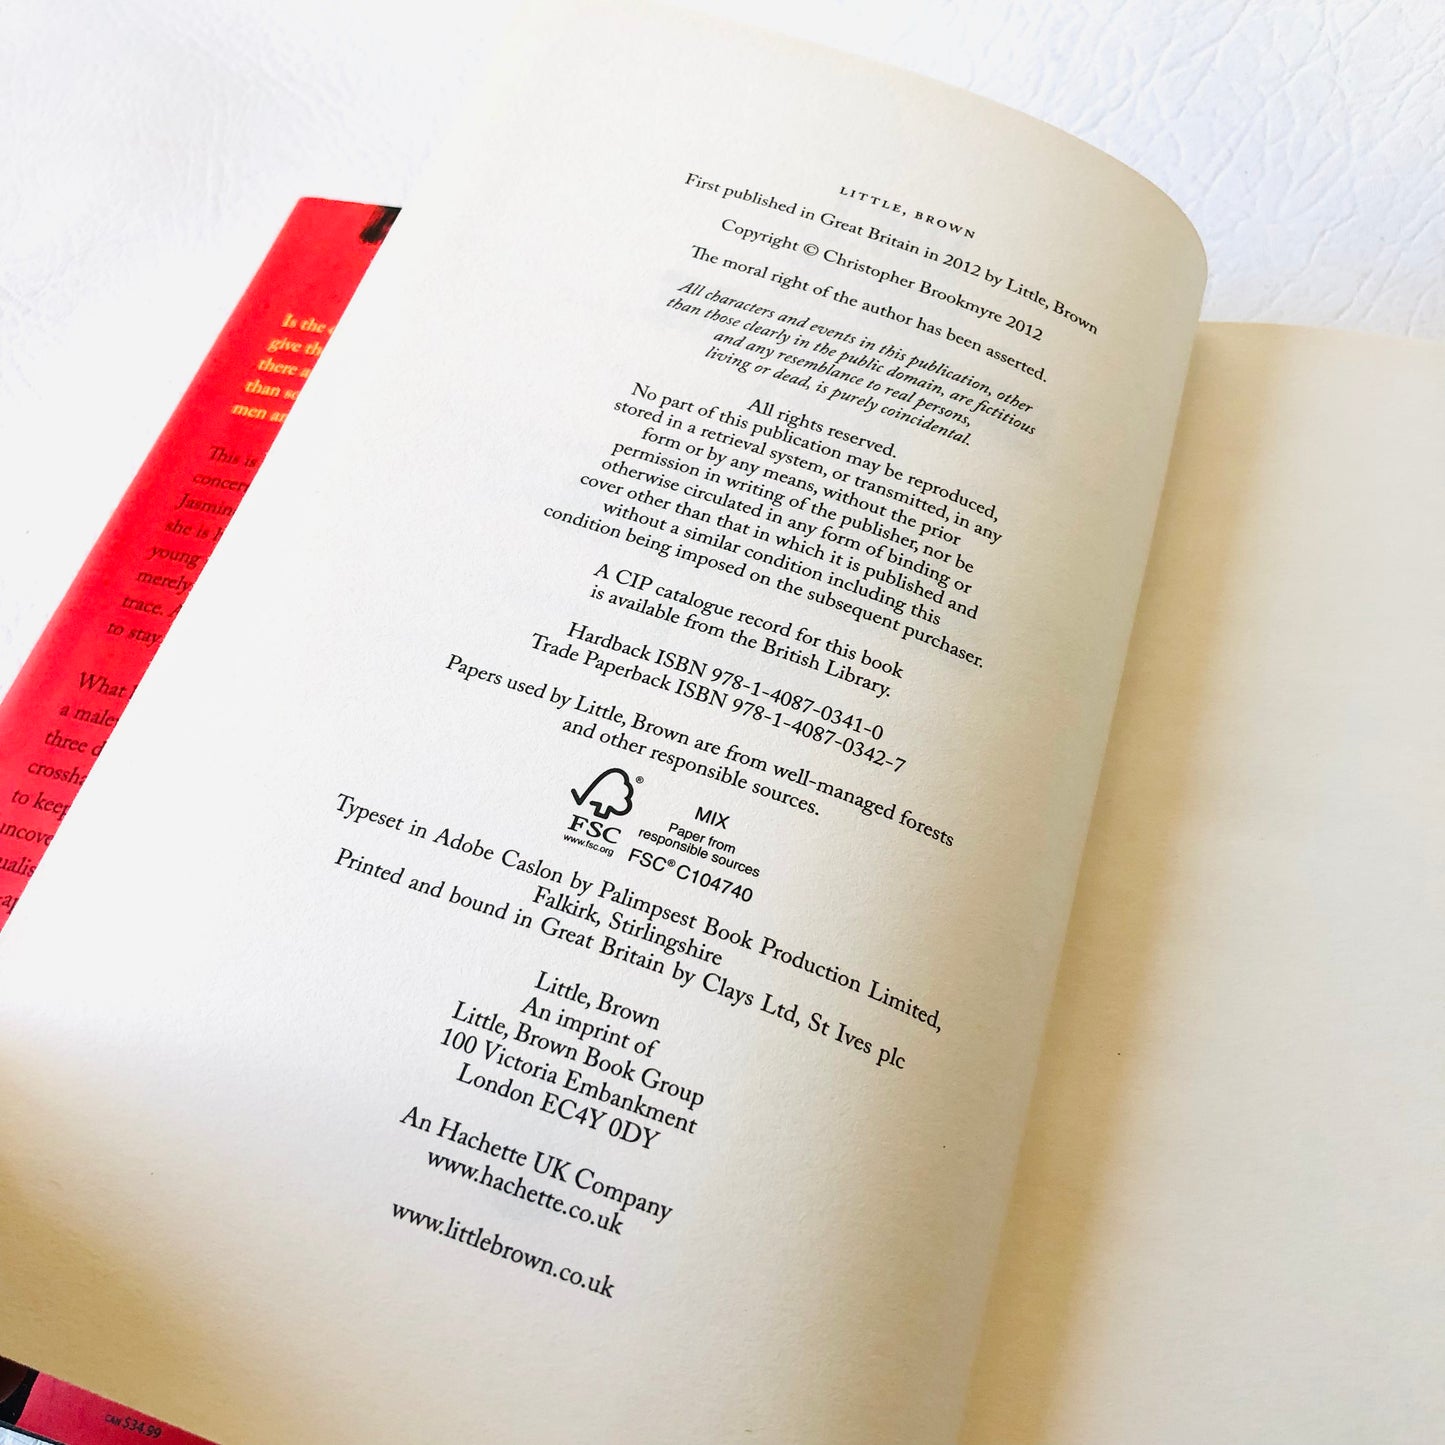 Is the
give th
there a
than so
men ar
This is
concer
Jasmin
she is
young
merely
trace. A
to stay
What
a male
three d
crossha
to keep
uncove
ualis
-ap
CAN $34.99
LITTLE, BROWN
First published in Great Britain in 2012 by Little, Brown
Copyright © Christopher Brookmyre 2012
The moral right of the author has been asserted.
All characters and events in this publication, other
than those clearly in the public domain, are fictitious
and any resemblance to real persons,
living or dead, is purely coincidental.
All rights reserved.
No part of this publication may be reproduced,
stored in a retrieval system, or transmitted, in any
form or by any means, without the prior
permission in writing of the publisher, nor be
otherwise circulated in any form of binding or
cover other than that in which it is published and
without a similar condition including this
condition being imposed on the subsequent purchaser.
A CIP catalogue record for this book
is available from the British Library.
Hardback ISBN 978-1-4087-0341-0
Trade Paperback ISBN 978-1-4087-0342-7
Papers used by Little, Brown are from well-managed forests
and other responsible sources.
®
FSC
www.fsc.org
MIX
Paper from
responsible sources
FSC® C104740
Typeset in Adobe Caslon by Palimpsest Book Production Limited,
Falkirk, Stirlingshire
Printed and bound in Great Britain by Clays Ltd, St Ives plc
Little, Brown
An imprint of
Little, Brown Book Group
100 Victoria Embankment
London EC4Y 0DY
An Hachette UK Company
www.hachette.co.uk
www.littlebrown.co.uk